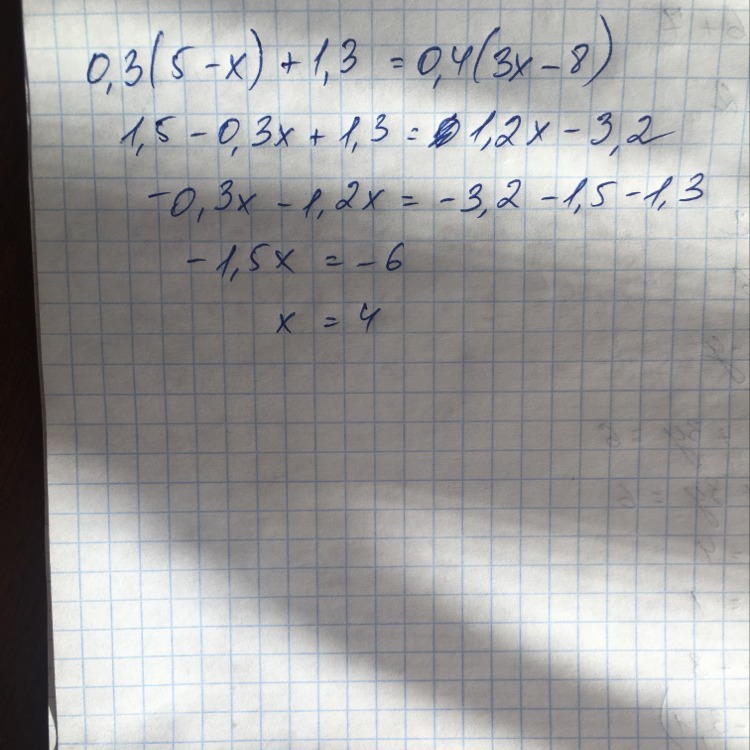 0,3(5-x)+1,3 = 0,4(3x-8)
1,5-0,3x+1,3 = 1,2x-3,2
-0,3x-1,2x = -3,2-1,5-1,3
-1,5x = -6
x = 4